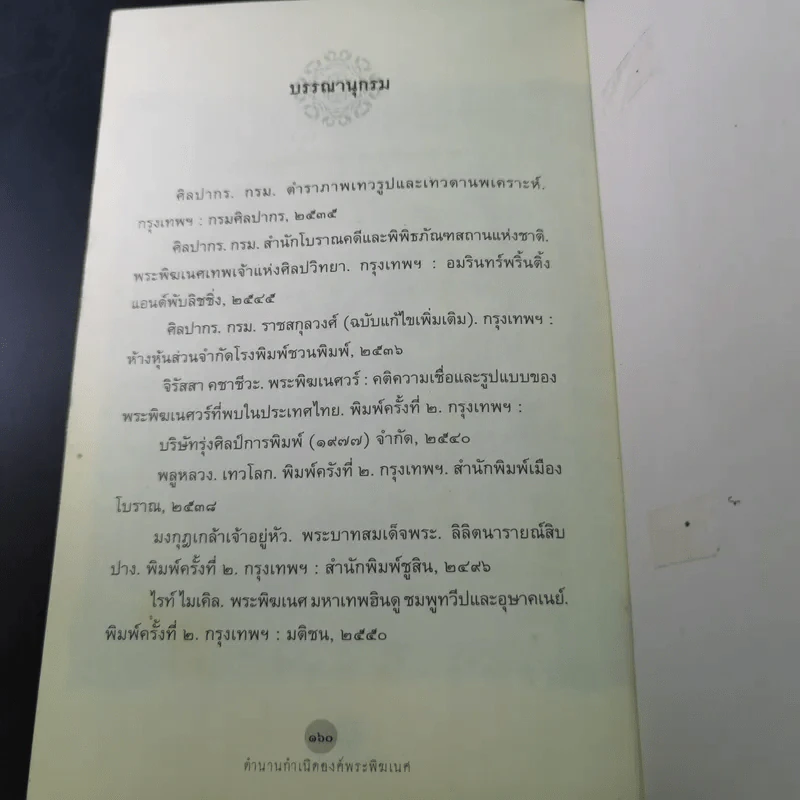 บรรณานุกรม
ศิลปากร. กรม. ตำราภาพเทวรูปและเทวดานพเคราะห์.
กรุงเทพฯ : กรมศิลปากร, ๒๕๓๕
ศิลปากร. กรม. สำนักโบราณคดีและพิพิธภัณฑสถานแห่งชาติ.
พระพิฆเนศเทพเจ้าแห่งศิลปวิทยา. กรุงเทพฯ : อมรินทร์พริ้นติ้ง
แอนด์พับลิชชิ่ง, ๒๕๔๕
ศิลปากร. กรม. ราชสกุลวงศ์ (ฉบับแก้ไขเพิ่มเติม). กรุงเทพฯ :
ห้างหุ้นส่วนจำกัดโรงพิมพ์ชวนพิมพ์, ๒๕๓๖
จิรัสสา คชาชีวะ. พระพิฆเนศวร์ : คติความเชื่อและรูปแบบของ
พระพิฆเนศวร์ที่พบในประเทศไทย. พิมพ์ครั้งที่ ๒. กรุงเทพฯ :
บริษัทรุ่งศิลป์การพิมพ์ (๑๙๗๗) จำกัด, ๒๕๔๐
พลูหลวง. เทวโลก. พิมพ์ครังที่ ๒. กรุงเทพฯ. สำนักพิมพ์เมือง
โบราณ, ๒๕๓๘
มงกุฎเกล้าเจ้าอยู่หัว. พระบาทสมเด็จพระ. ลิลิตนารายณ์สิบ
ปาง. พิมพ์ครั้งที่ ๒. กรุงเทพฯ : สำนักพิมพ์ชูสิน, ๒๔๙๖
ไรท์ ไมเคิล. พระพิฆเนศ มหาเทพฮินดู ชมพูทวีปและอุษาคเนย์.
พิมพ์ครั้งที่ ๒. กรุงเทพฯ : มติชน, ๒๕๕๐
๑๖๐
ตำนานกำเนิดองค์พระพิฆเนศ